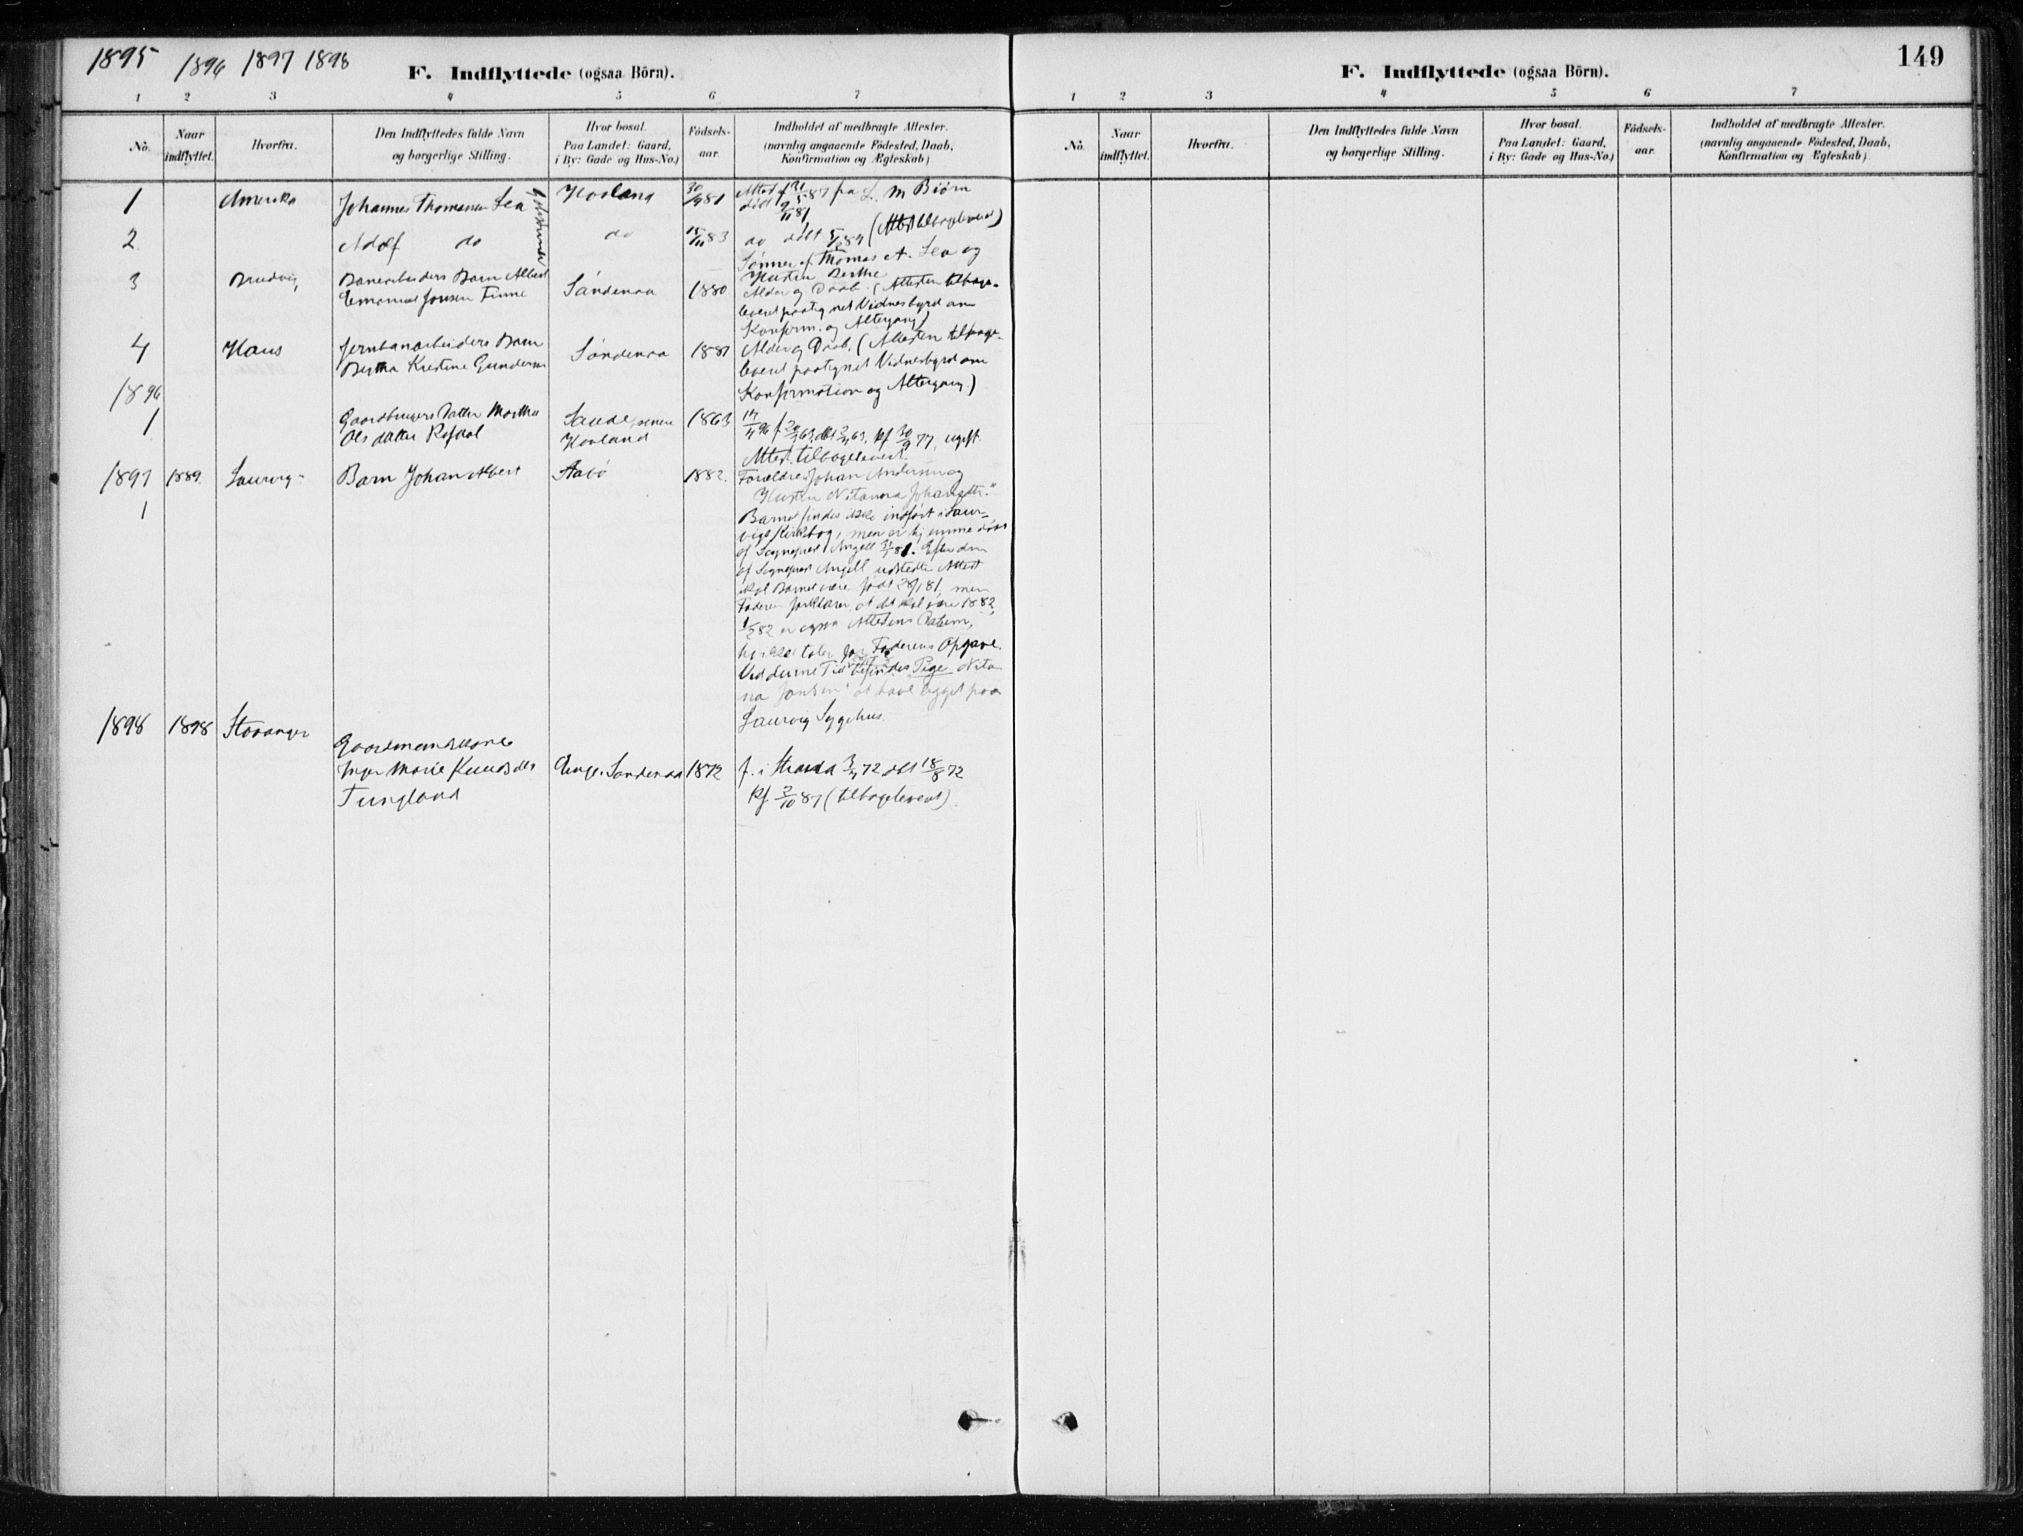 1895 1896 1897 1898
F. Indflyttede (ogsaa Börn).
1 2 3 4 5 6 7
No.
Naar indflyttet.
Hvorfra.
Den Indflyttedes fulde Navn
og borgerlige Stilling.
Hvor bosat.
Paa Landet: Gaard,
i By: Gade og Hus-No.)
Födsels-
aar.
Indholdet af medbragte Attester.
(navnlig angaaende Födested, Daab,
Konfirmation og Ægteskab)
1 Amerika Johannes Thomassen Lea Hovland 30/9 81 Attest 87 fra L. M Biørn
döbt 9/11 81
2 Adolf do do 15/11 83 do döbt 84 (Attest tilbageleveret)
Sönner af Thomas A. Lea og
Hustru Berthe
3 Bruvig Banearbeiders Barn Albert
Emanuel Jonsen Finne Söndenaa 1880 Alder og Daab. (Attesten tilbage-
leveret paategnet Vidnesbyrd om
Konfirm. og Altergang)
4 Haus Jernbanarbeiders Barn
Bertha Kristine Gundersen Söndenaa 1881 Alder og Daab. (Attesten tilbage-
leveret paategnet Vidnesbyrd om
Konfirmation og Altergang.)
1896
1 Gaardbrugers Datter Martha
Olsdatter Refsdal Saude, senere
Hovland 1863 f. 63, döbt 63, kf 30/9 77, ugift.
Attest. tilbageleveret.
1897 1889. Laurvig Barn Johan Albert Aabö 1882. Forældre Johan Andersen og
1 Hustru Nitanna Johansdtr."
Barnet findes ikke indført i Laur-
vigs Kirkebog, men er hjemmedøbt
af Sognepræst Angell 81. Efter den
af Sognepræst Angell udstedte Attest
skal Barnet være født 28/1 81, men
Faderen forklarer, at det skal være 1882,
82 er ogsaa Attestens Datum,
hvilket taler for Faderens Opgave.
Ved denne Tid befindes Pige Nitan-
na Jansen at have ligget paa
Laurvig Sygehus.
1898 1898 Stavanger Gaardmandskone
Inger Marie Knudsdtr
Tungland Enge, Söndenaa 1872 f. i Strand 72 döbt 18/8 72
kf. 2/10 87 (tilbageleveret).
149
F. Indflyttede (ogsaa Börn).
1 2 3 4 5 6 7
No.
Naar
indflyttet.
Hvorfra.
Den Indflyttedes fulde Navn
og borgerlige Stilling.
Hvor bosat.
Paa Landet: Gaard,
i By: Gade og Hus-No.)
Födsels-
aar.
Indholdet af medbragte Attester.
(navnlig angaaende Födested, Daab,
Konfirmation og Ægteskab)